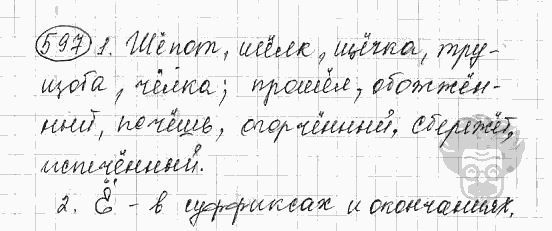 597 1. Шёпот, шёлк, щёчка, тру-
щоба, чёлка; прошёл, обожжён-
ный, печёшь, огорчённый, сбережёт,
испечённый.
2. Ё - в суффиксах и окончаниях.